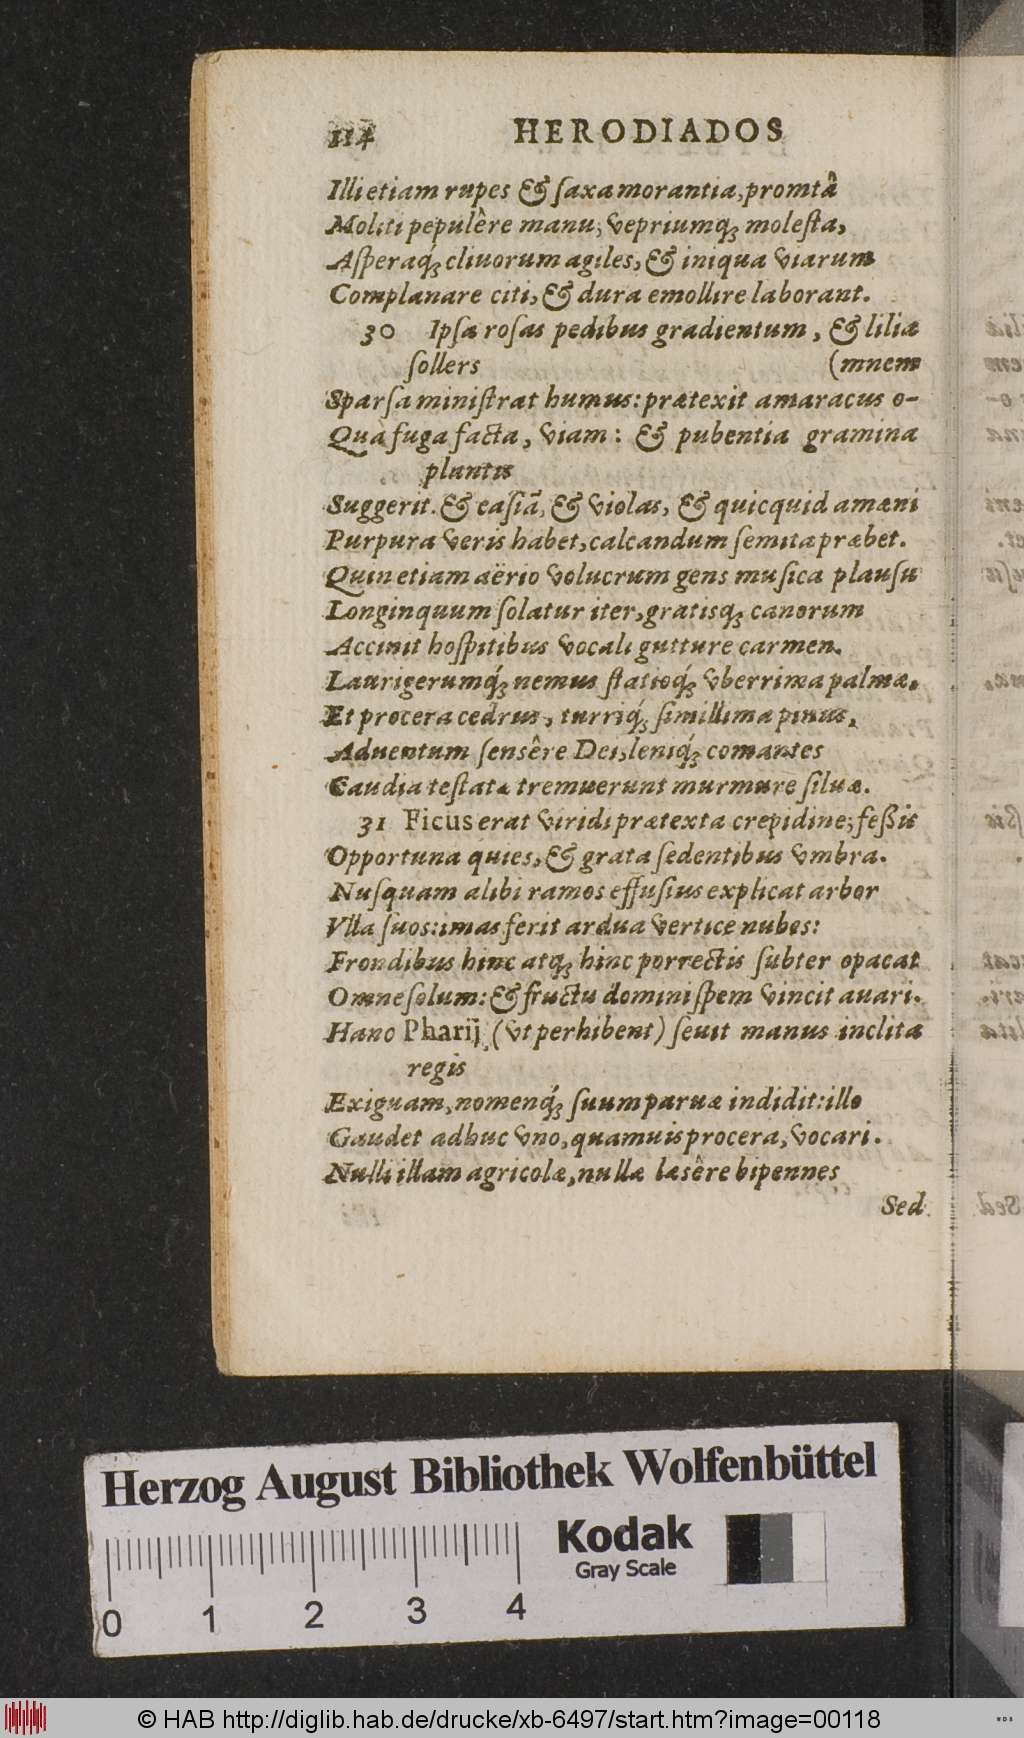 114 HERODIADOS
Illi etiam rupes & ſaxa morantia, promtâ
Moliti pepulêre manu; vepriumq́; moleſta,
Aſperaq́; cliuorum agiles, & iniqua viarum
Complanare citi, & dura emollire laborant.
30 Ipſa roſas pedibus gradientum, & lilia
ſollers (mnem
Sparſa miniſtrat humus: prætexit amaracus o-
Quà fuga facta, viam: & pubentia gramina
plantis
Suggerit. & caſiã, & violas, & quicquid amæni
Purpura veris habet, calcandum ſemita præbet.
Quin etiam aërio volucrum gens muſica plauſu
Longinquum ſolatur iter, gratisq́; canorum
Accinit hoſpitibus vocali gutture carmen.
Laurigerumq́; nemus ſtatioq́; vberrima palmæ.
Et procera cedrus, turriq́; ſimillima pinus,
Aduentum ſensêre Dei, leniq́; comantes
Gaudia teſtata tremuerunt murmure ſiluæ.
31 Ficus erat viridi prætexta crepidine; feßis
Opportuna quies, & grata ſedentibus vmbra.
Nuſquam alibi ramos effuſius explicat arbor
Vlla ſuos: imas ferit ardua vertice nubes:
Frondibus hinc atq; hinc porrectis ſubter opacat
Omne ſolum: & fructu domini ſpem vincit auari.
Hanc Pharij (vt perhibent) ſeuit manus inclita
regis
Exiguam, nomenq́; ſuum paruæ indidit: illo
Gaudet adhuc vno, quamuis procera, vocari.
Nulli illam agricolæ, nullæ læsêre bipennes
Sed
Herzog August Bibliothek Wolfenbüttel
Kodak
Gray Scale
0 1 2 3 4
© HAB http://diglib.hab.de/drucke/xb-6497/start.htm?image=00118